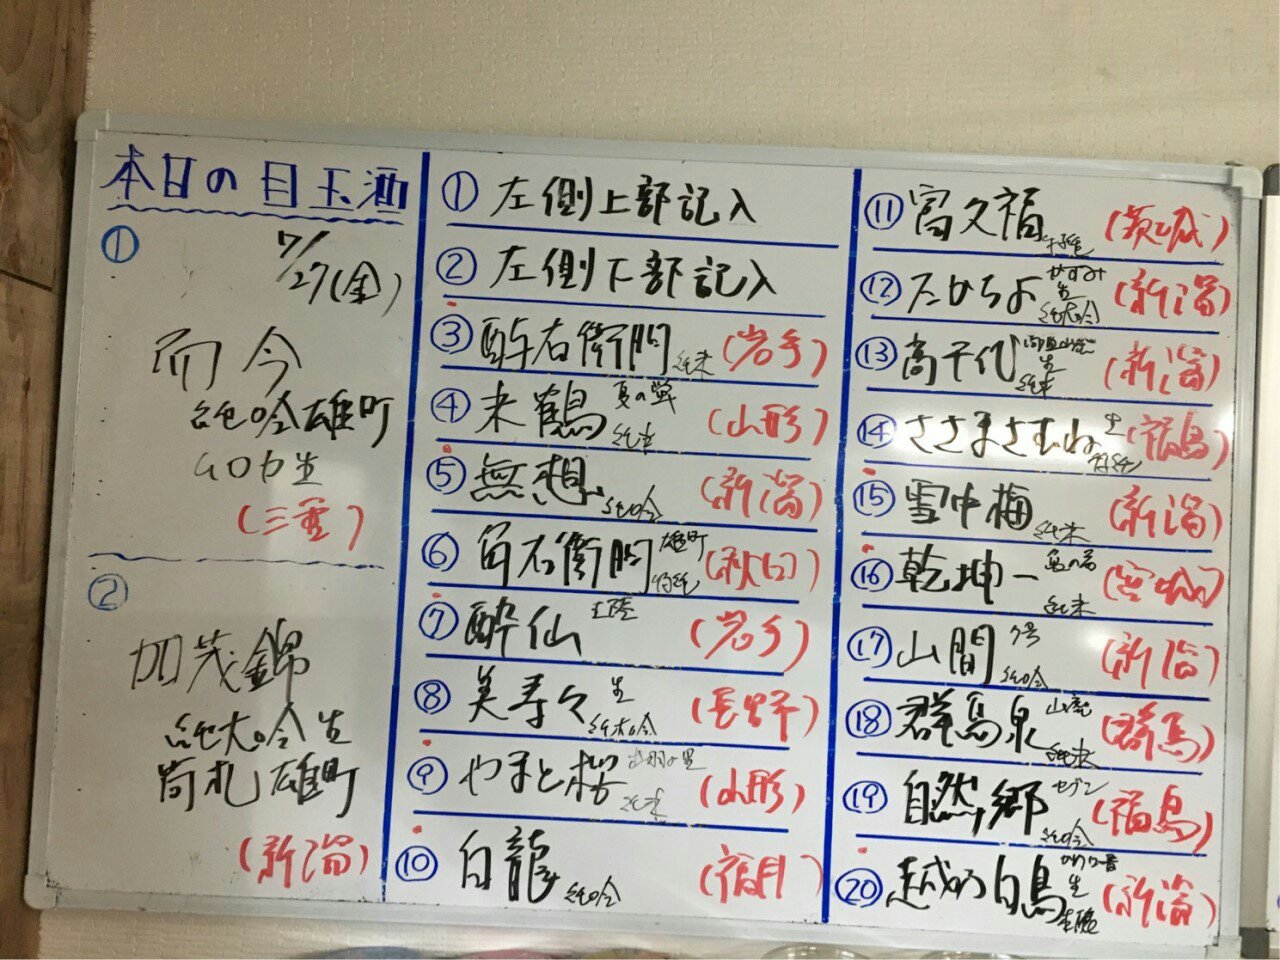 本日の目玉酒
①
7/27(金)
而今
純吟雄町
生
(三重)
②
加茂錦
純大吟生
荷札雄町
(新潟)
① 左側上部記入
② 左側下部記入
③ 酉与右衛門 純米 (岩手)
④ 米鶴 夏の 純米 (山形)
⑤ 無想 純吟 (新潟)
⑥ 角右衛門 雄町 特純 (秋田)
⑦ 酔仙 (岩手)
⑧ 美寿々 生 純大吟 (長野)
⑨ やまと桜 出羽の里 純米 (山形)
⑩ 白龍 純吟 (福井)
⑪ 富久福 特純 (茨城)
⑫ たかちよ かすみ 生 純大吟 (新潟)
⑬ 高千代 生 純米 (新潟)
⑭ ささまさむね 生 特純 (福島)
⑮ 雪中梅 純米 (新潟)
⑯ 乾坤一 純米 (宮城)
⑰ 山間 純吟 (新潟)
⑱ 群馬泉 山廃 純米 (群馬)
⑲ 自然郷 セブン 純吟 (福島)
⑳ 越乃白鳥 生 (新潟)